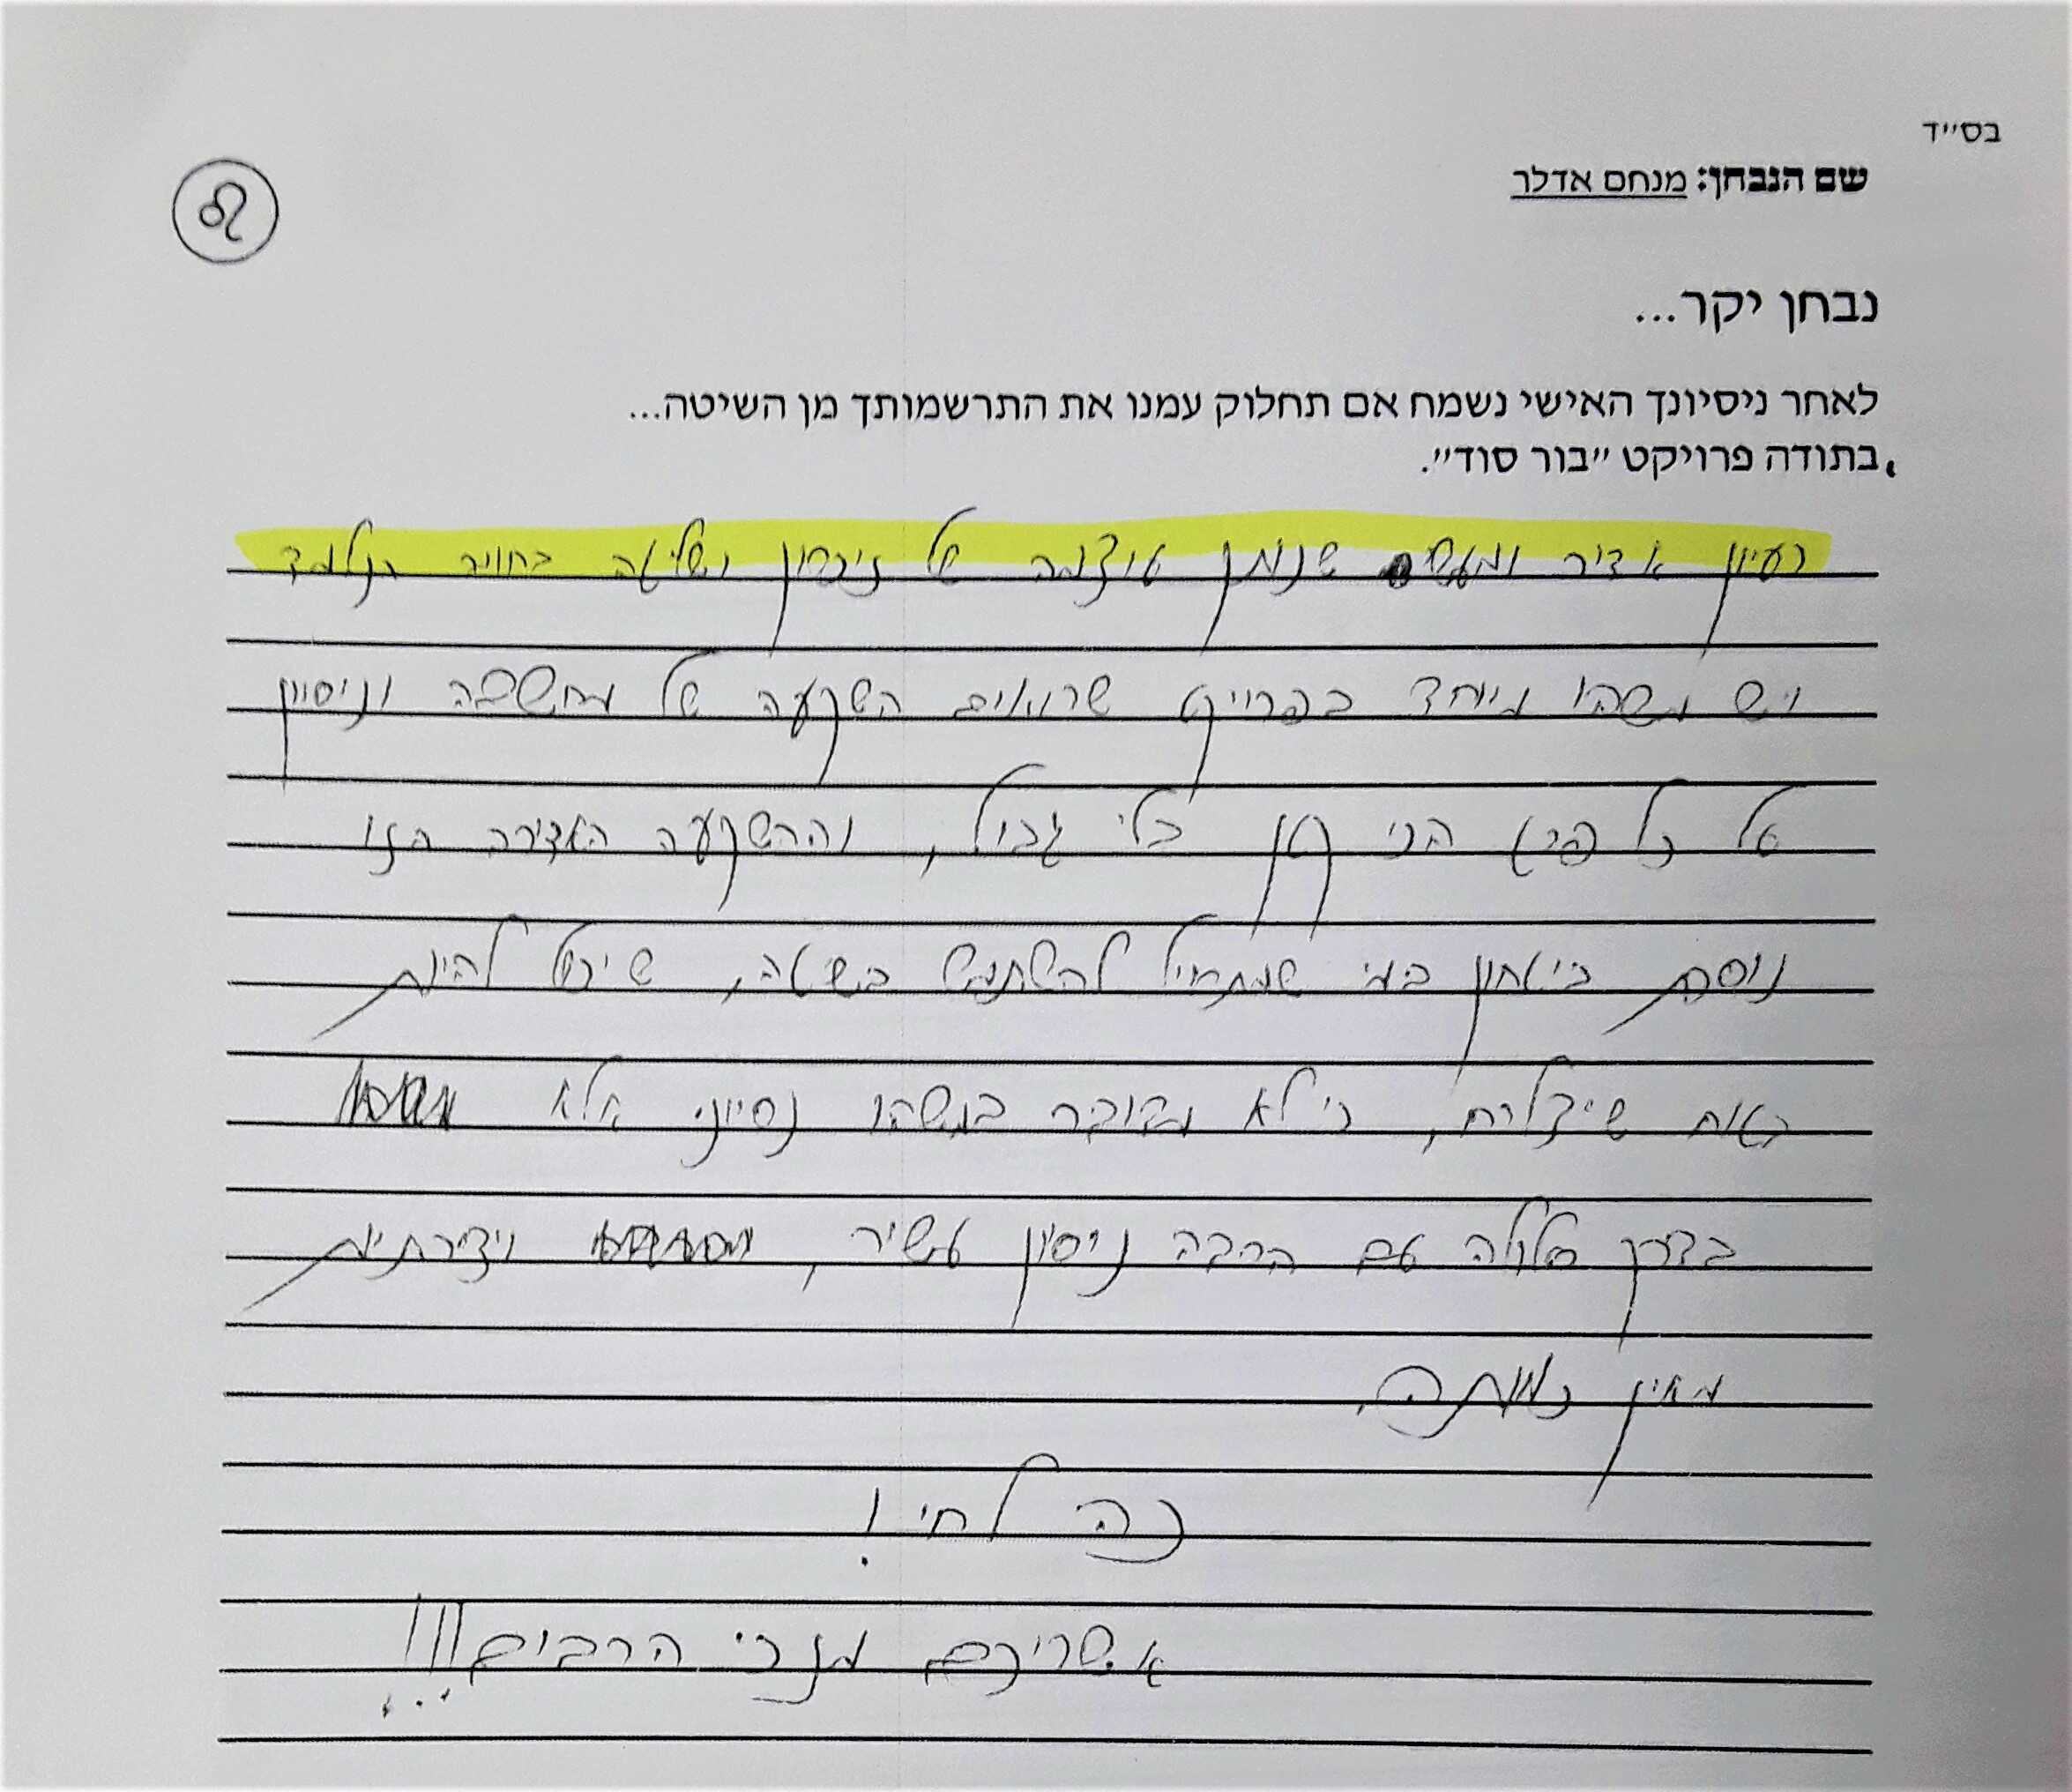 בס״ד
שם הנבחן: מנחם אדלר
נבחן יקר...
לאחר ניסיונך האישי נשמח אם תחלוק עמנו את התרשמותך מן השיטה...
בתודה פרויקט ״בור סוד״.
רעיון אדיר ומעשי שנותן עוצמה של זיכרון ושליטה בחומר הנלמד
ויש משהו מיוחד בפרוייקט שרואים השקעה של מחשבה וניסיון
על כל פרט הכי קטן בלי גבול, וההשקעה האדירה הזו
נוסכת ביטחון במי שמתחיל להשתמש בשיטה, שיכול להיות
בטוח שיצליח, כי לא מדובר במשהו נסיוני אלא
בדרך סלולה עם הרבה ניסיון עשיר, ויצירתיות
מאין כמותה.
כה לחי!
אשריכם מזכי הרבים!!!